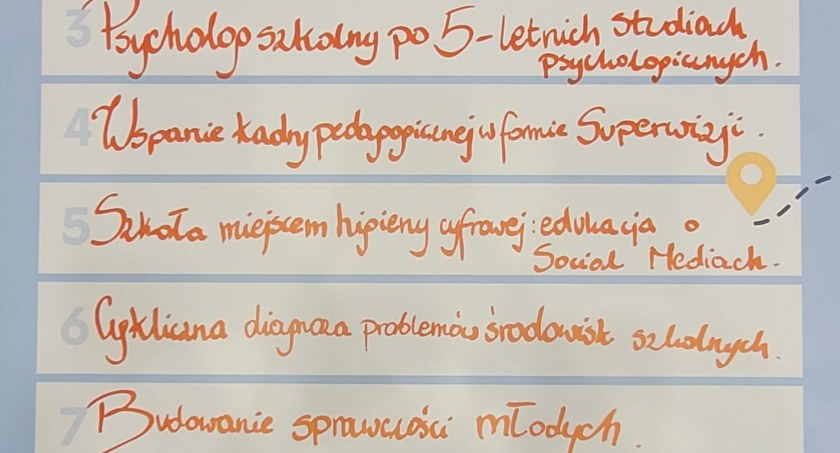 3 Psycholog szkolny po 5-letnich studiach
psychologicznych.
4 Wsparcie kadry pedagogicznej w formie Superwizji.
5 Szkoła miejscem higieny cyfrowej: edukacja o
Social Mediach.
6 Cykliczna diagnoza problemów środowisk szkolnych.
7 Budowanie sprawczości młodych.